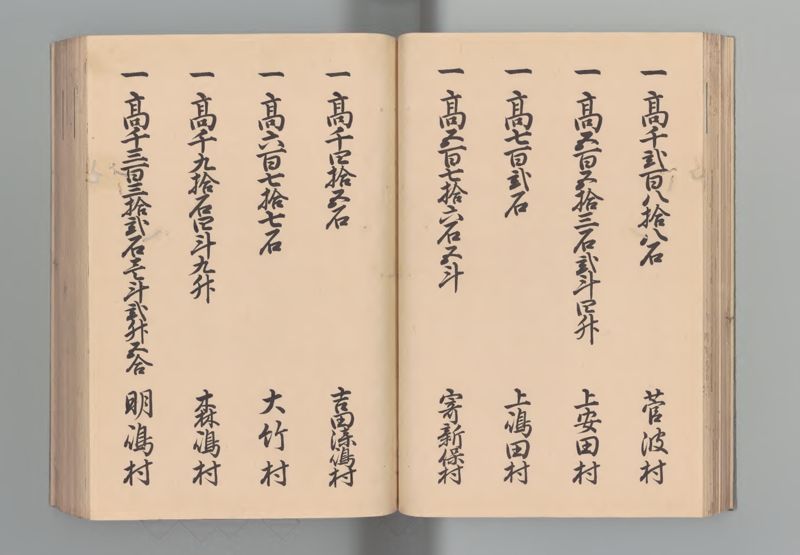 一高千弐百八拾八石 菅波村
一高五百五拾三石弐斗四升 上安田村
一高七百弐石 上嶋田村
一高五百七拾六石五斗 寄新保村
一高千四拾五石 吉田 嶋村
一高六百七拾七石 大竹村
一高千九拾石四斗九升 森嶋村
一高千三百三拾弐石壱斗弐升五合 明嶋村